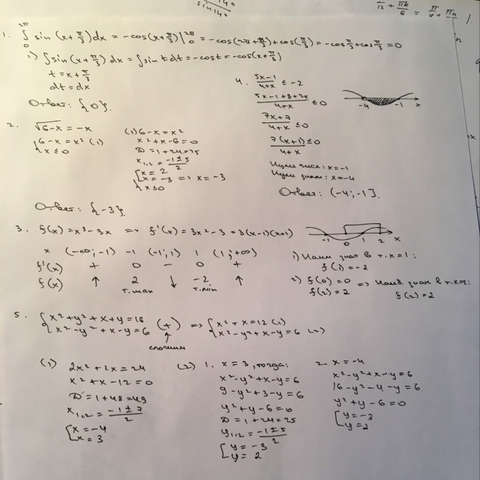 1. ∫₀^{2π} sin(x+π/3)dx = -cos(x+π/3)|₀^{2π} = -cos(2π+π/3)+cos(π/3) = -cos π/3 + cos π/3 = 0
1) ∫sin(x+π/3)dx = ∫sin t dt = -cos t = -cos(x+π/3)
t = x+π/3
dt = dx
Ответ: {0}.
2.
√6-x = -x
{6-x = x² (1)
x ≤ 0
(1) 6-x = x²
x²+x-6=0
D = 1+24=25
x₁,₂ = -1±5/2
[x = 2
x = -3 => x = -3
x ≤ 0
Ответ: {-3}.
4. 5x-1/4+x ≤ -2
5x-1+8+2x/4+x ≤ 0
7x+7/4+x ≤ 0
7(x+1)/4+x ≤ 0
Нули числ: x=-1
Нули знам: x=-4
-4 -1 x
Ответ: (-4;-1].
3. f(x) = x³-3x => f'(x) = 3x²-3 = 3(x-1)(x+1)
x (-∞;-1) -1 (-1;1) 1 (1;+∞)
f'(x) + 0 - 0 +
f(x) ↑ 2 ↓ -2 ↑
т.max т.min
-1 0 1 2 x
1) Наим знач в т.x=1:
f(1) = -2
2) f(0) = 0
f(2) = 2
=> Наиб знач в т.x=2:
f(2) = 2
5. {x²+y²+x+y=18
x²-y²+x-y=6 (+) => {x²+x=12 (1)
x²-y²+x-y=6 (2)
сложим
(1) 2x²+2x=24
x²+x-12=0
D = 1+48=49
x₁,₂ = -1±7/2
[x=-4
x=3
(2) 1. x=3, тогда:
x²-y²+x-y=6
9-y²+3-y=6
y²+y-6=0
D = 1+24=25
y₁,₂ = -1±5/2
[y=-3
y=2
2. x=-4
x²-y²+x-y=6
16-y²-4-y=6
y²+y-6=0
[y=-3
y=2